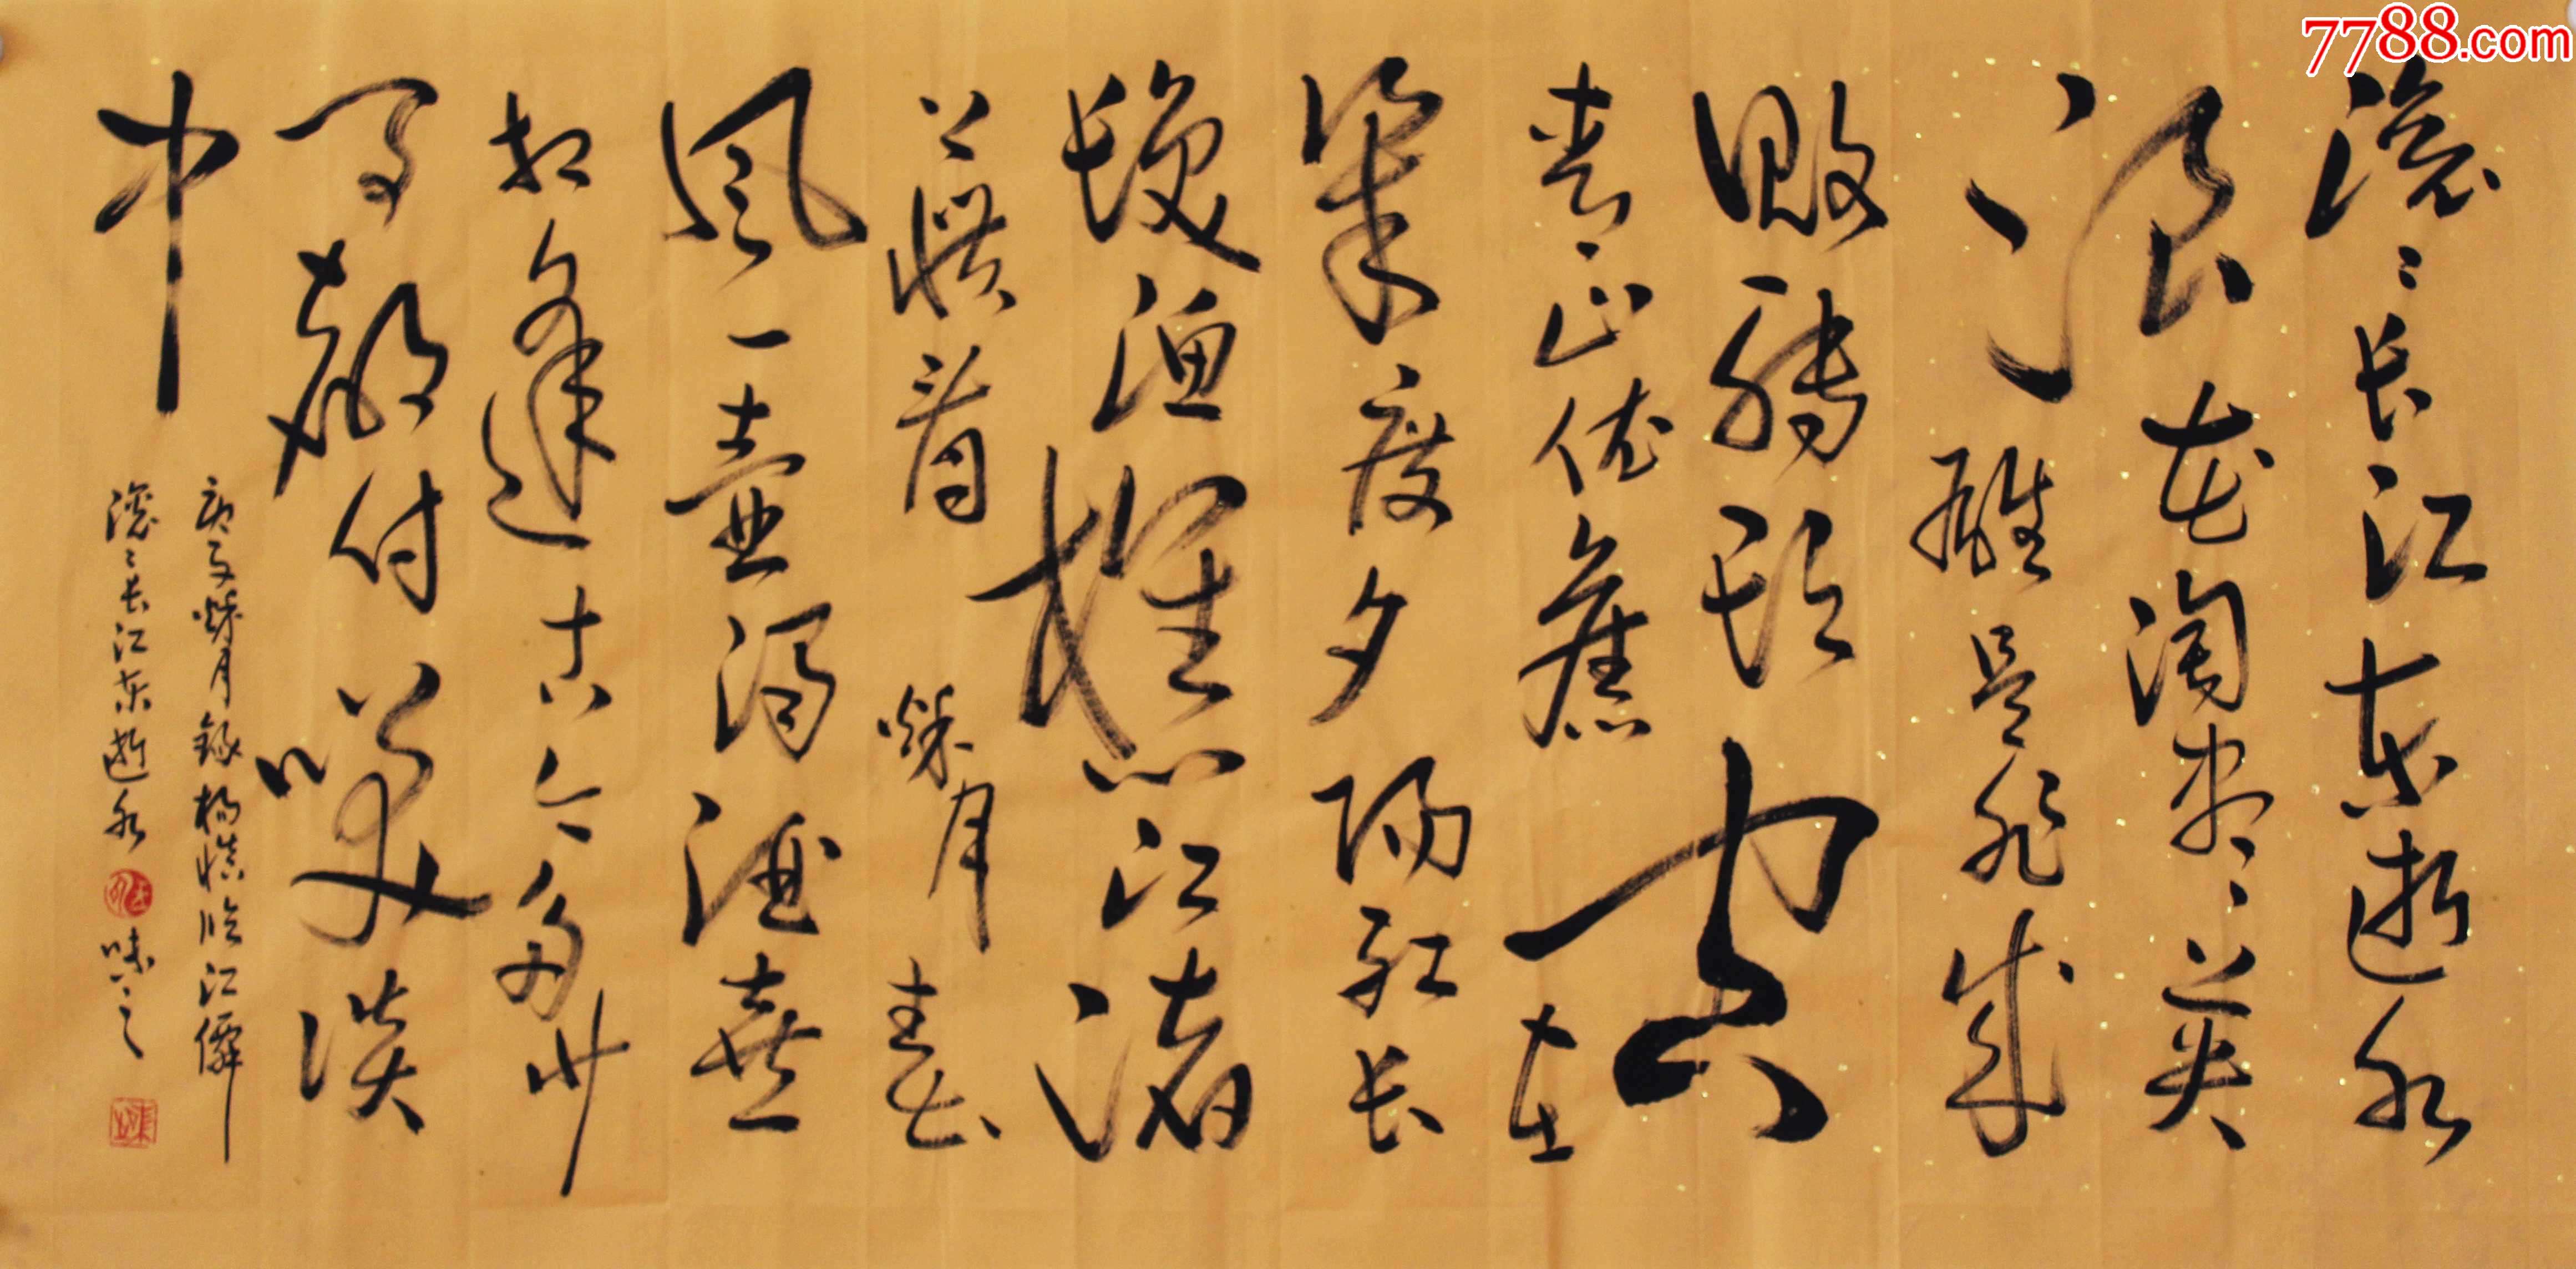 7788.com
滚〻长江东逝水
浪花淘尽英
雄是非成
败转头空
青山依旧在
几度夕阳红长
发渔樵江渚
上惯看秋月春
风一壶浊酒喜
相逢古今多少
事都付笑谈
中
庚子秋月録杨慎临江仙
滚〻长江东逝水
味之